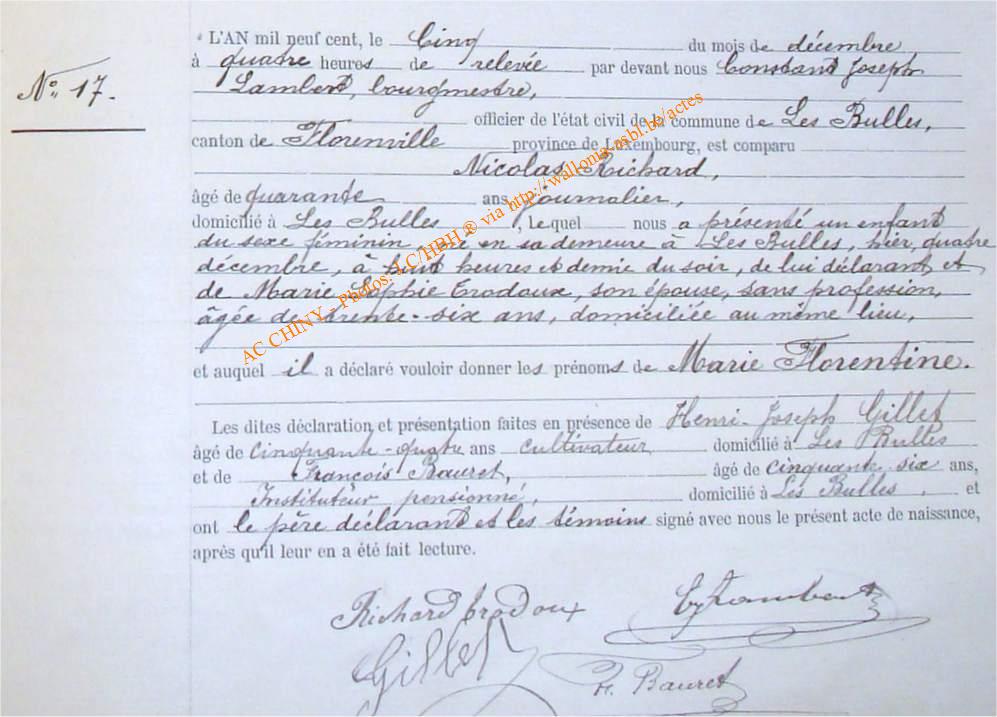 L'AN mil neuf cent, le Cinq du mois de décembre,
à quatre heures de relevée par devant nous Constant Joseph
Lambert, bourgmestre,
officier de l'état civil de la commune de Les Bulles,
N° 17.
canton de Florenville province de Luxembourg, est comparu
Nicolas Richard,
âgé de quarante ans journalier,
domicilié à Les Bulles, lequel nous a présenté un enfant
du sexe féminin, né en sa demeure à Les Bulles, hier, quatre
décembre, à huit heures et demie du soir, de lui déclarant et
de Marie Sophie Trodoux, son épouse, sans profession,
âgée de trente-six ans, domiciliée au même lieu,
et auquel il a déclaré vouloir donner les prénoms de Marie Florentine.
Les dites déclaration et présentation faites en présence de Henri-Joseph Gillet
âgé de Cinquante-quatre ans cultivateur domicilié à Les Bulles
et de François Bauret, âgé de cinquante six ans,
Instituteur pensionné, domicilié à Les Bulles, et
ont le père déclarant et les témoins signé avec nous le présent acte de naissance,
après qu'il leur en a été fait lecture.
Richard Trodoux
Lambert
Gillet
Bauret
AC CHINY - Photos: LC/HBH ® via http://wallonia.asbl.be/actes